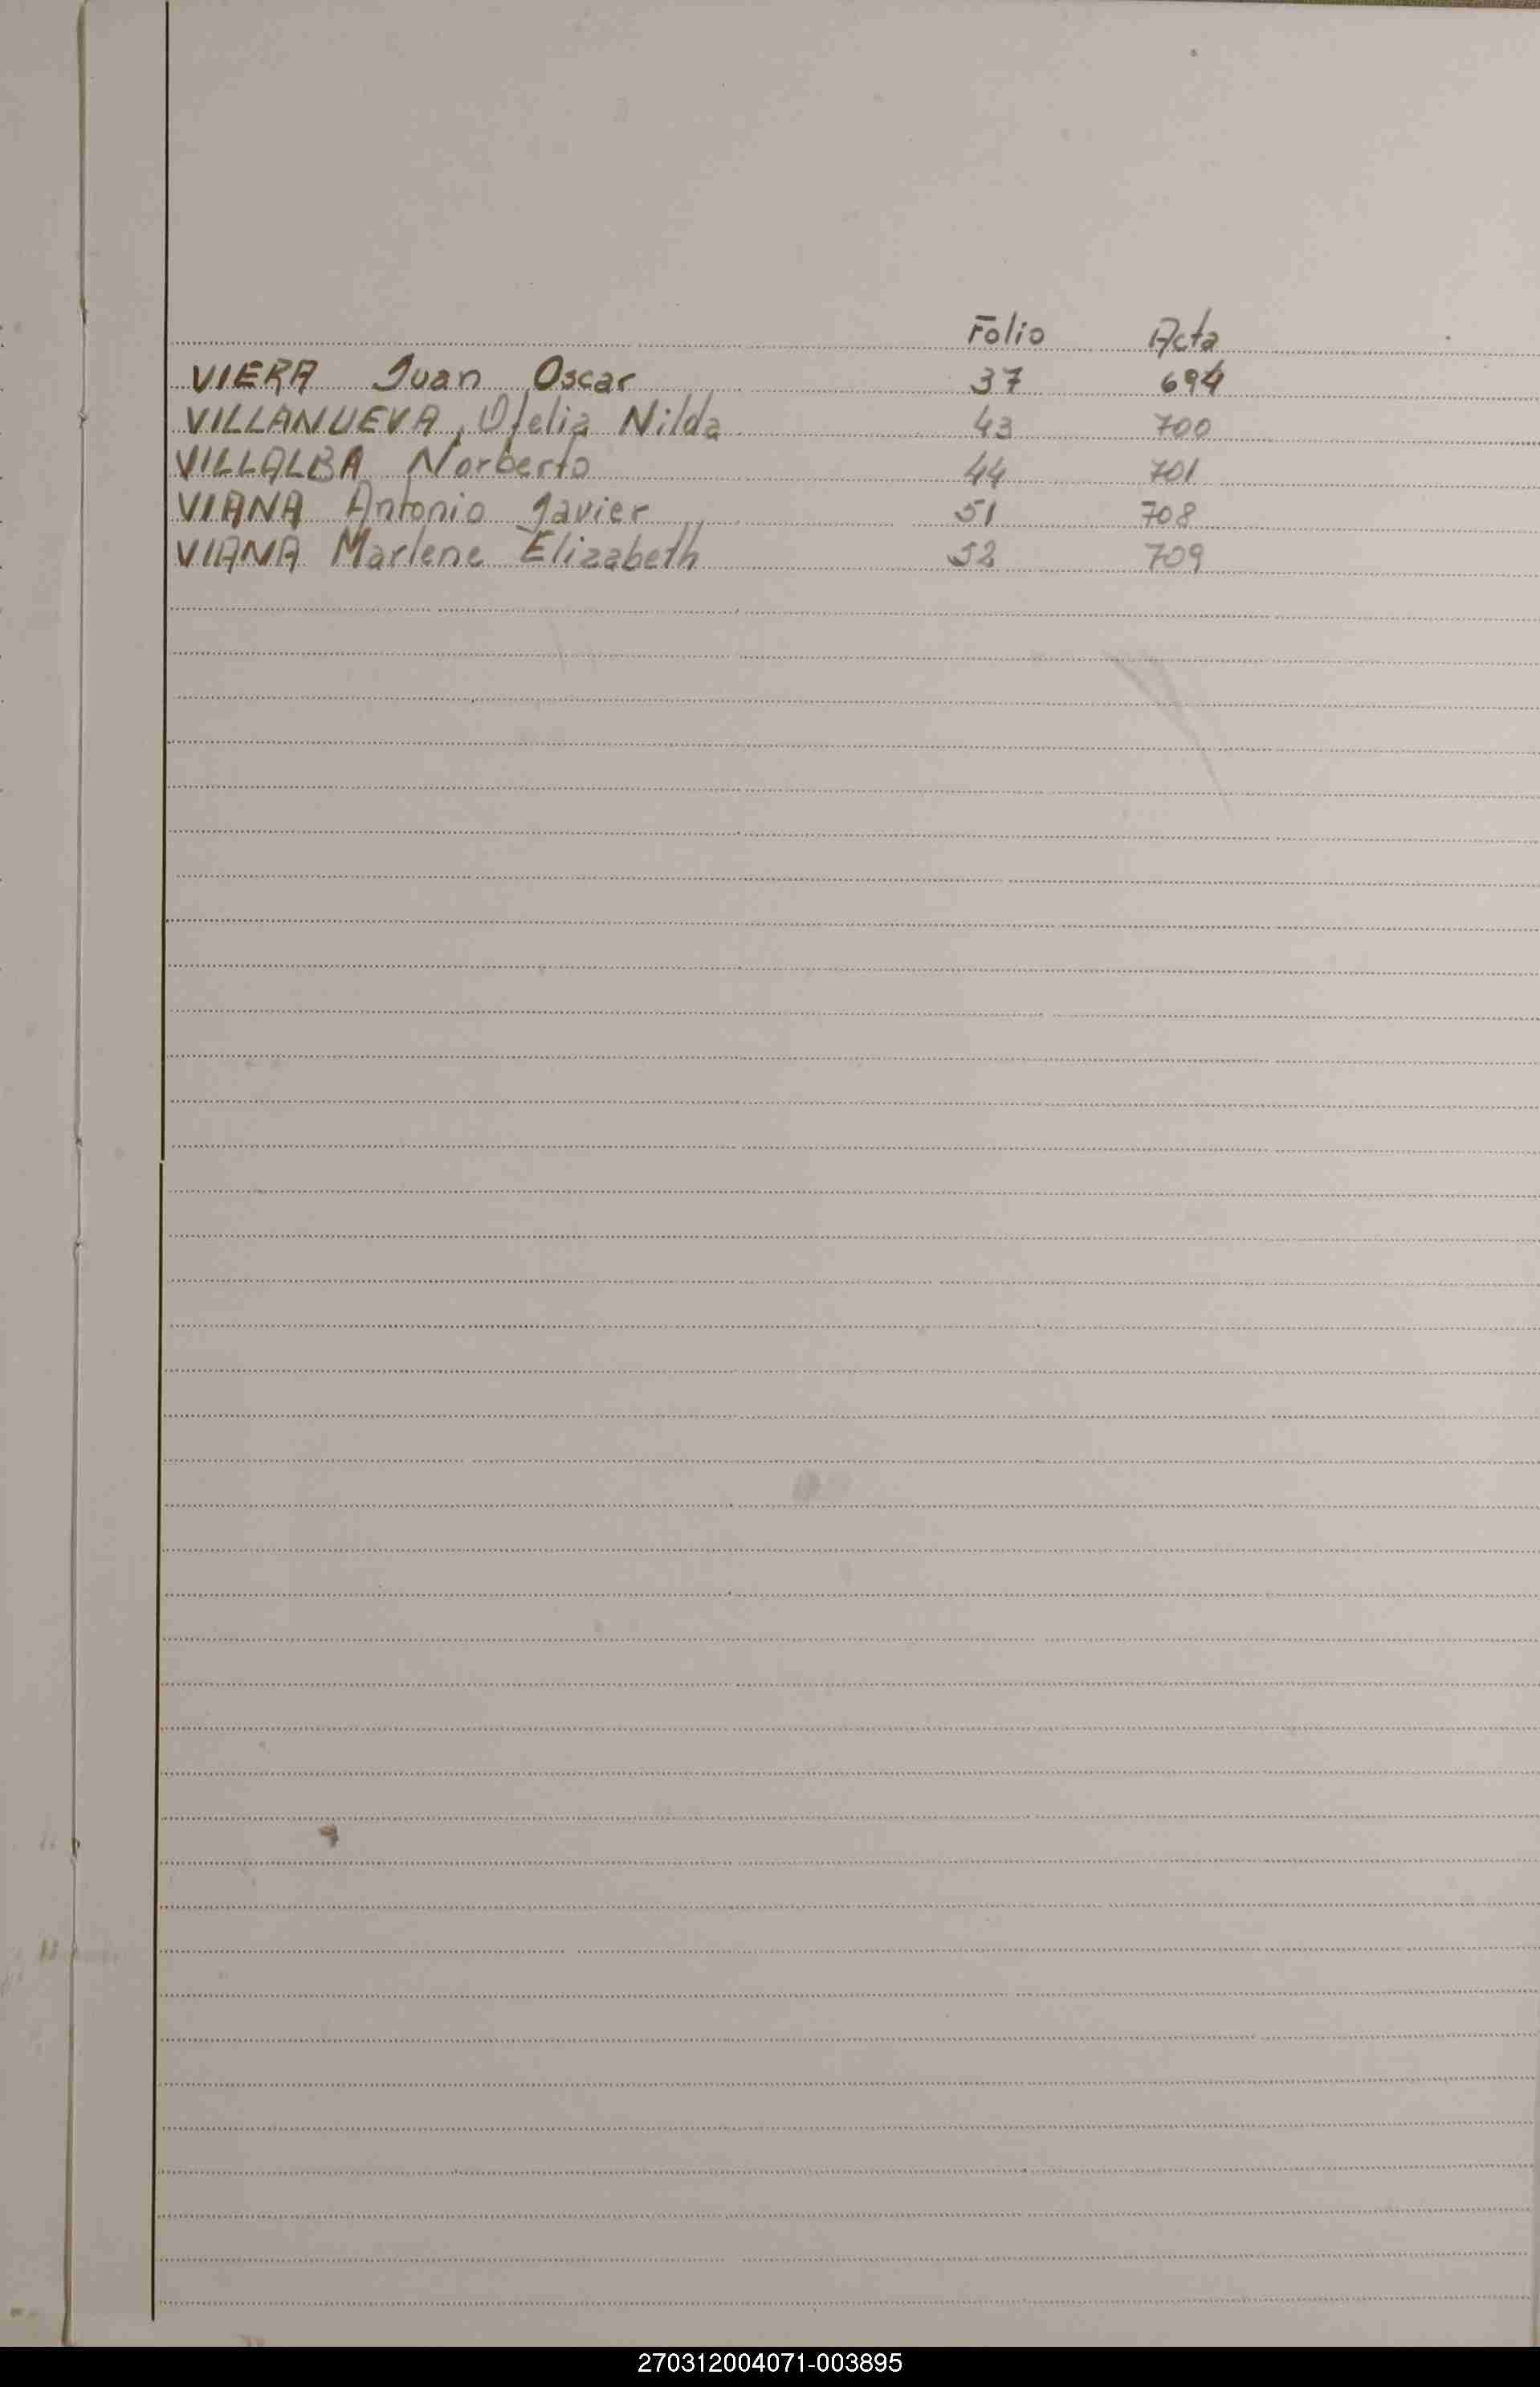 Folio Acta
VIERA Juan Oscar 37 694
VILLANUEVA, Ofelia Nilda 43 700
VILLALBA Norberto 44 701
VIANA Antonio Javier 51 708
VIANA Marlene Elizabeth 52 709
270312004071-003895